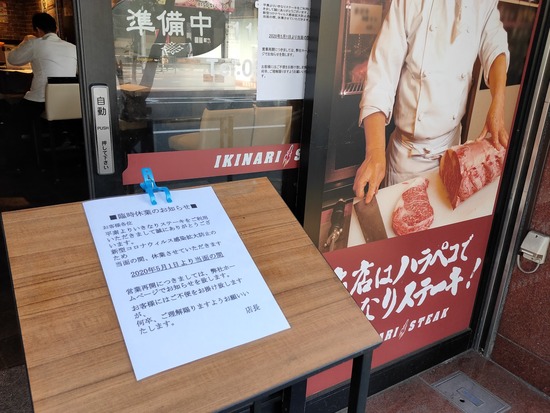 準備中
自動
PUSH
押して下さい
IKINARI STEAK
■臨時休業のお知らせ■
お客様各位
平素よりいきなりステーキをご利用
いただきまして誠にありがとうござ
います。
新型コロナウィルス感染拡大防止の
ため
当面の間、休業させていただきます
2020年5月1日より当面の間
営業再開につきましては、弊社ホー
ムページでお知らせ致します。
お客様にはご不便をお掛け致します
が、
何卒、ご理解賜りますようお願いい
たします。
店長
店はハラペコで
なりステーキ!
ARI STEAK